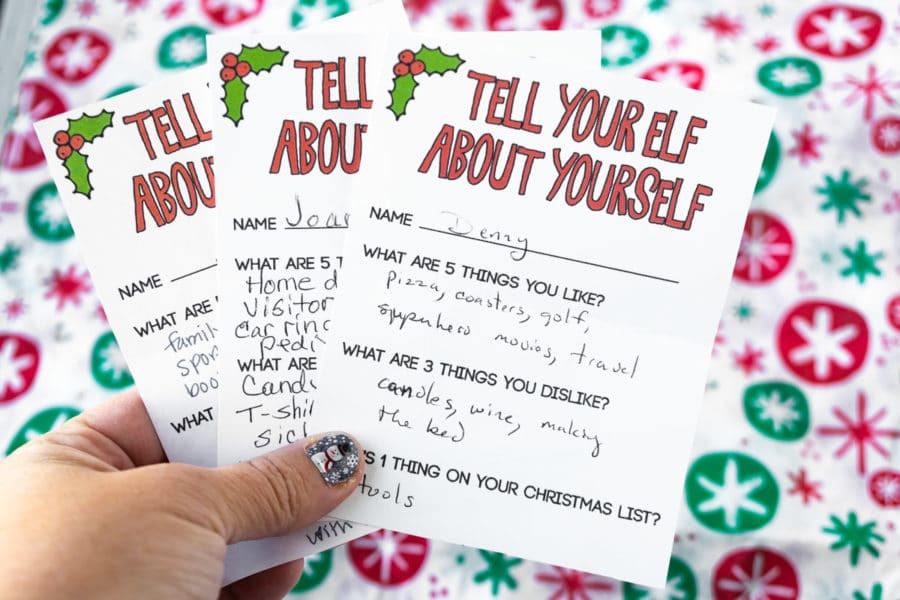 TELL
ABOU
NAME
WHAT ARE
famil
spor
boo
WHAT
TELL
ABOUT
NAME Joan
WHAT ARE 5 T
Home d
Visitor
Earrings
pedi
WHAT ARE
Candl
T-shir
Sick
with
TELL YOUR ELF
ABOUT YOURSELF
NAME Denny
WHAT ARE 5 THINGS YOU LIKE?
Pizza, coasters, golf,
superhero movies, travel
WHAT ARE 3 THINGS YOU DISLIKE?
candles, wine, making
the bed
'S 1 THING ON YOUR CHRISTMAS LIST?
tools